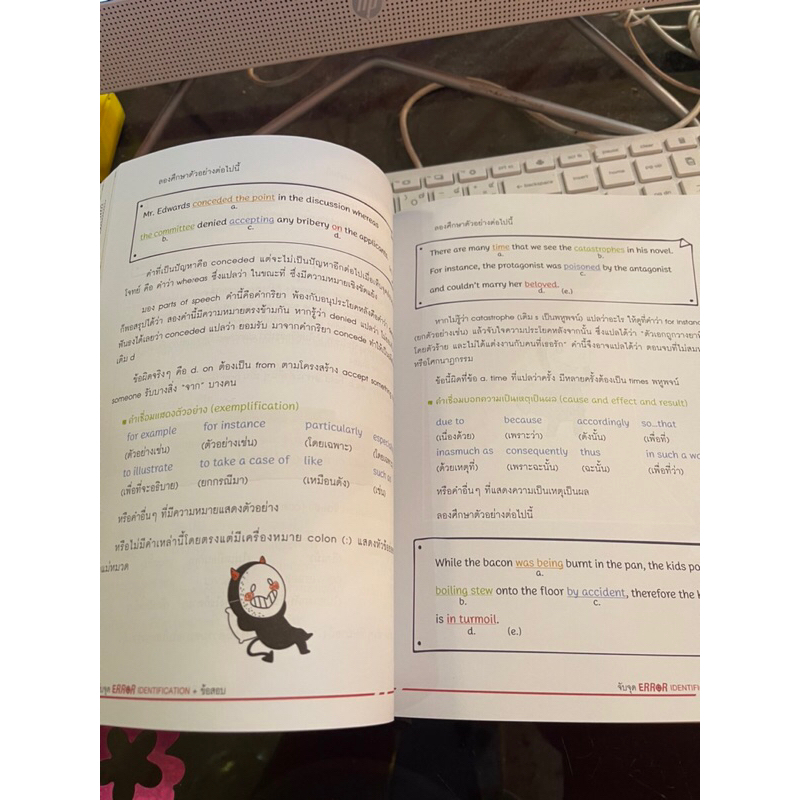 ลองศึกษาตัวอย่างต่อไปนี้
Mr. Edwards conceded the point in the discussion whereas
a.
the committee denied accepting any bribery on the
b. c. d.
คำที่เป็นปัญหาคือ conceded แต่จะไม่เป็นปัญหาอีกต่อไปเมื่อ
โจทย์ คือ คำว่า whereas ซึ่งแปลว่า ในขณะที่ ซึ่งมีความหมายเชิงขัดแย้ง
มอง parts of speech คำนี้คือคำกริยา พ้องกับอนุประโยคหลังคือคำว่า
ก็พอสรุปได้ว่า สองคำนี้มีความหมายตรงข้ามกัน หากรู้ว่า denied แปลว่า
ฟันธงได้เลยว่า conceded แปลว่า ยอมรับ มาจากคำกริยา concede ทำให้เป็น
เติม d
ข้อผิดจริงๆ คือ d. on ต้องเป็น from ตามโครงสร้าง accept something
someone รับบางสิ่ง "จาก" บางคน
■ คำเชื่อมแสดงตัวอย่าง (exemplification)
for example for instance particularly
(ตัวอย่างเช่น) (ตัวอย่างเช่น) (โดยเฉพาะ)
to illustrate to take a case of like such as
(เพื่อที่จะอธิบาย) (ยกกรณีมา) (เหมือนดัง) (เช่น)
หรือคำอื่นๆ ที่มีความหมายแสดงตัวอย่าง
หรือไม่มีคำเหล่านี้โดยตรงแต่มีเครื่องหมาย colon (:) แสดงตัว
แม่หมวด
จับจุด ERROR IDENTIFICATION + ข้อสอบ
ลองศึกษาตัวอย่างต่อไปนี้
There are many time that we see the catastrophes in his novel.
a. b.
For instance, the protagonist was poisoned by the antagonist
c.
and couldn't marry her beloved.
d. (e.)
หากไม่รู้ว่า catastrophe (เติม s เป็นพหูพจน์) แปลว่าอะไร ให้ดูที่คำว่า for instance
(ยกตัวอย่างเช่น) แล้วจับใจความประโยคหลังจากนั้น ซึ่งแปลได้ว่า "ตัวเอกถูกวางยา
โดยตัวร้าย และไม่ได้แต่งงานกับคนที่เธอรัก" คำนี้จึงอาจแปลได้ว่า ตอนจบที่ไม่
หรือโศกนาฏกรรม
ข้อนี้ผิดที่ข้อ a. time ที่แปลว่าครั้ง มีหลายครั้งต้องเป็น times พหูพจน์
■ คำเชื่อมบอกความเป็นเหตุเป็นผล (cause and effect and result)
due to because accordingly so...that
(เนื่องด้วย) (เพราะว่า) (ดังนั้น) (เพื่อที่)
inasmuch as consequently thus in such a
(ด้วยเหตุที่) (เพราะฉะนั้น) (ฉะนั้น) (เพื่อที่ว่า)
หรือคำอื่นๆ ที่แสดงความเป็นเหตุเป็นผล
ลองศึกษาตัวอย่างต่อไปนี้
While the bacon was being burnt in the pan, the kids
a.
boiling stew onto the floor by accident, therefore the
b. c.
is in turmoil.
d. (e.)
จับจุด ERROR